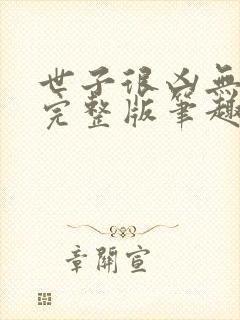 世子很凶無
完整版筆趣
章開宣